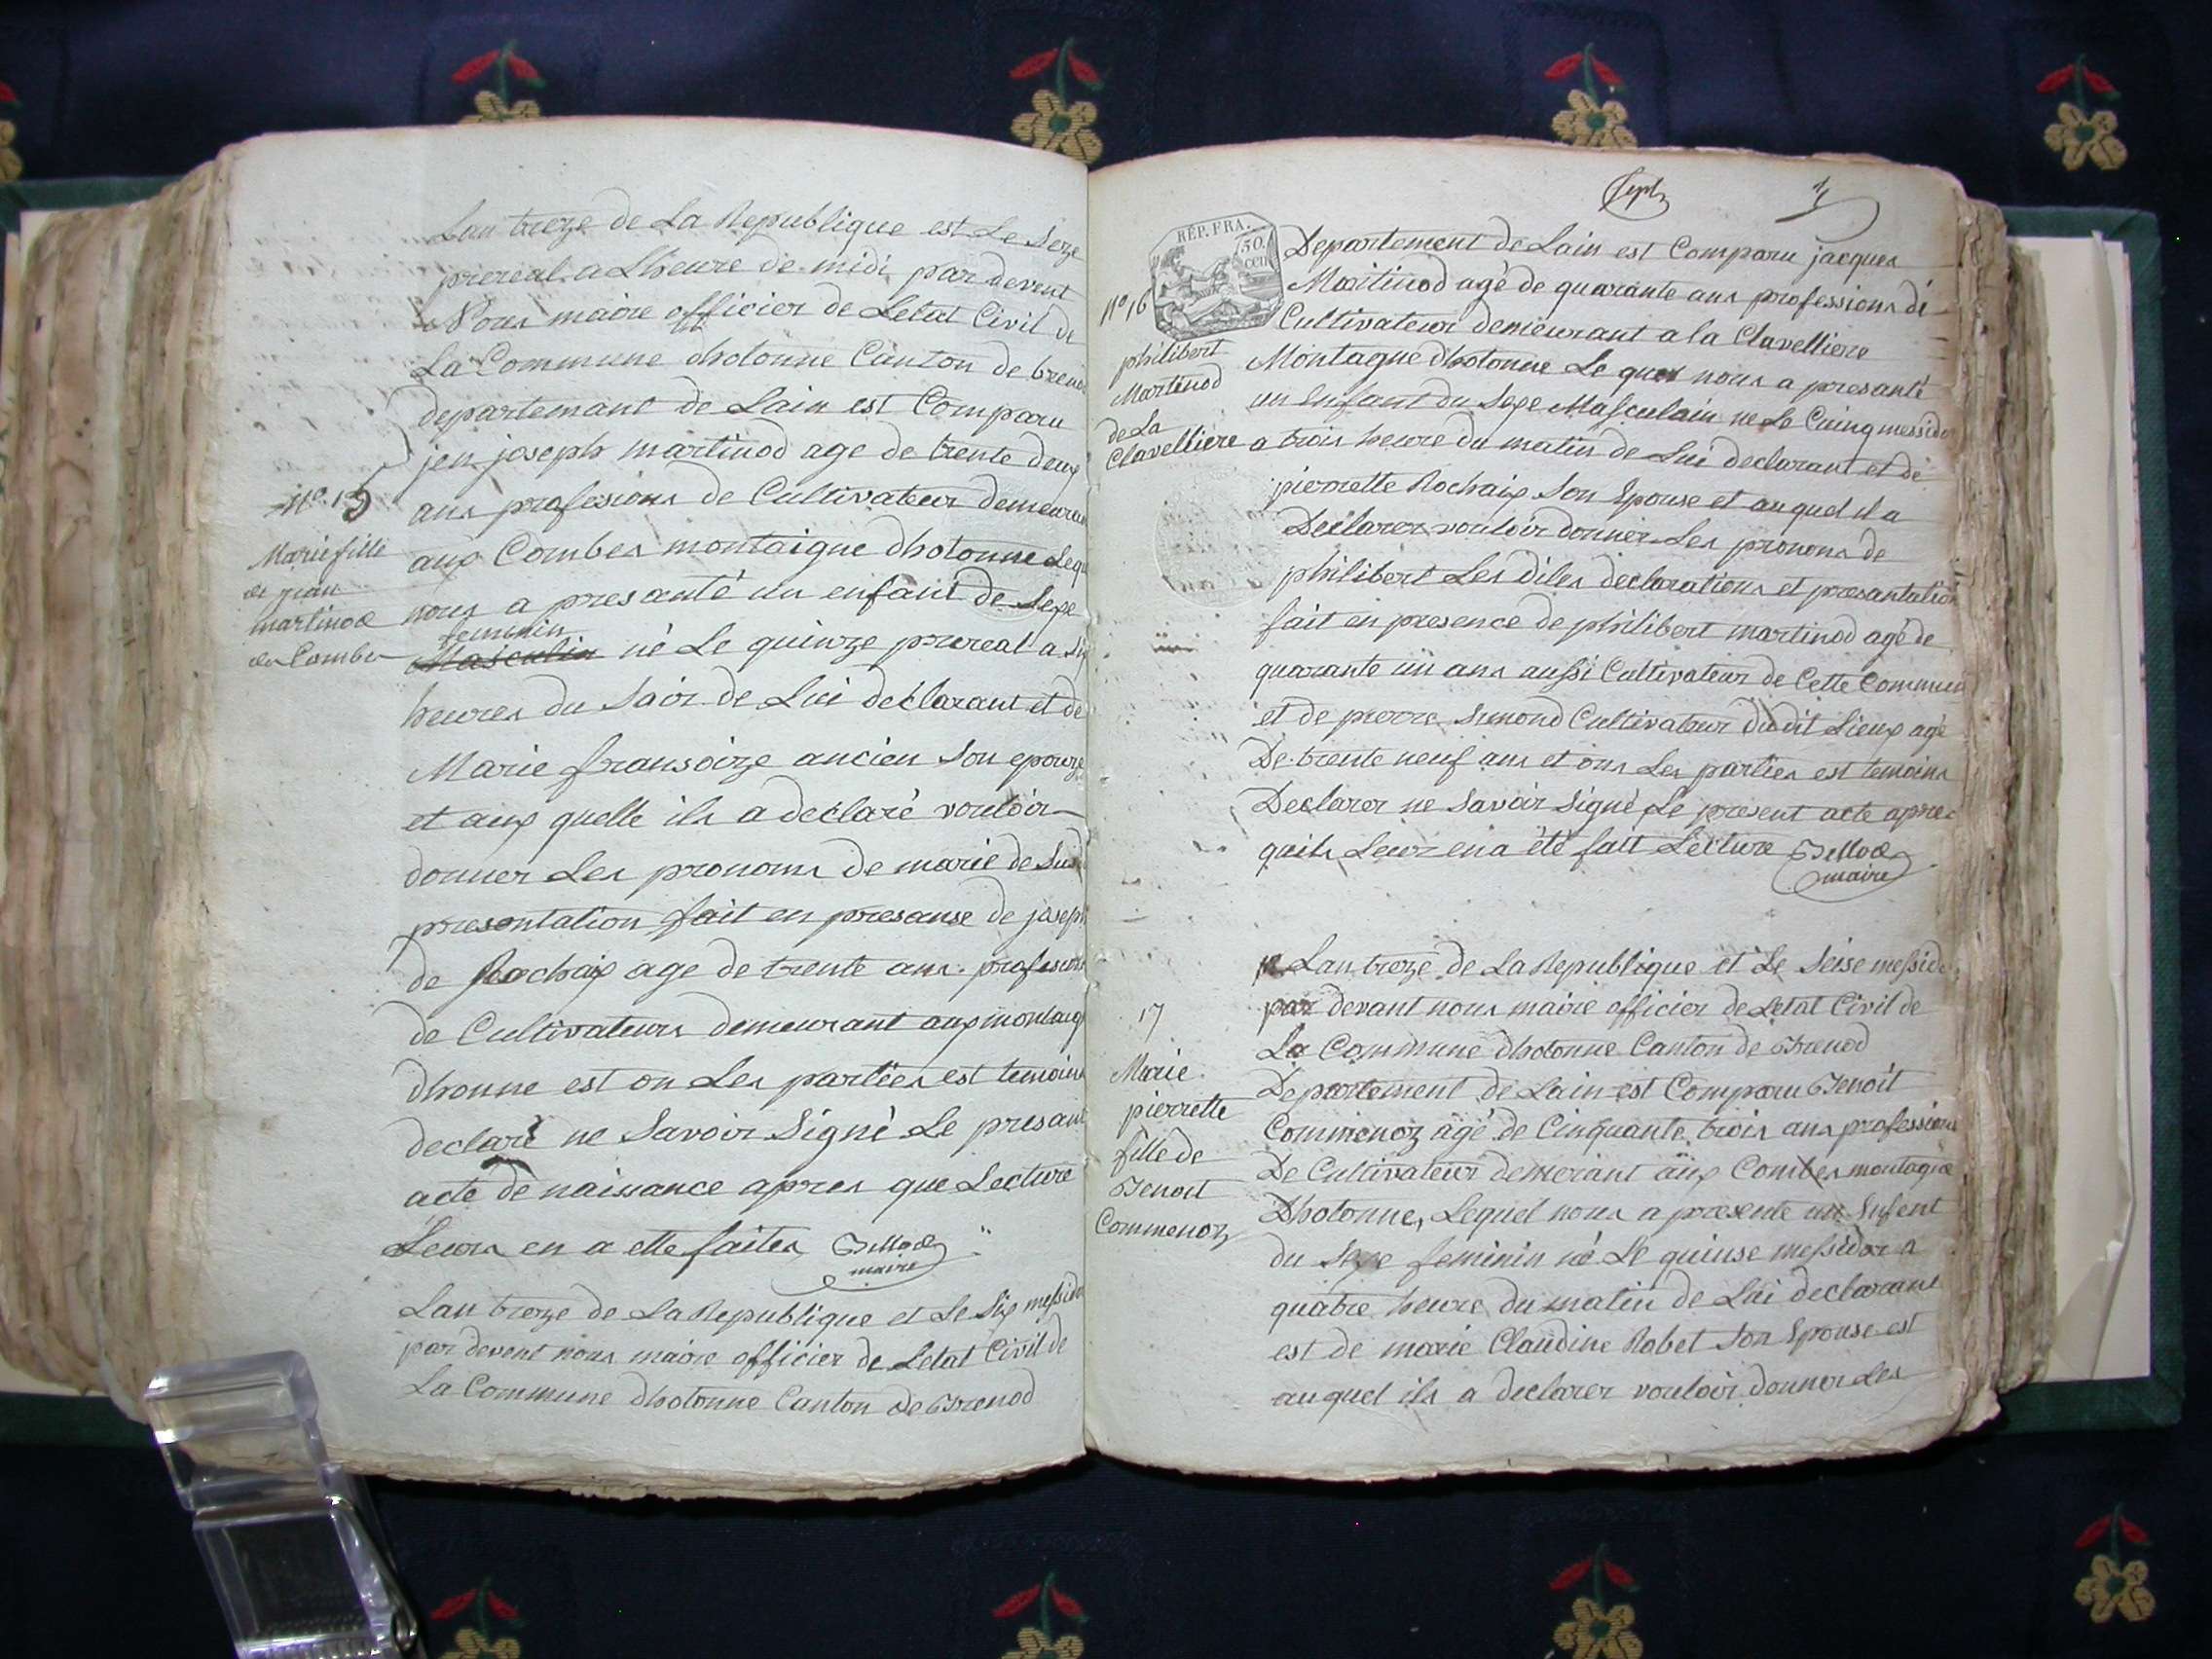 Lan treze de La Republique est Le Seze
prereal a Lheure de midi par devent
Nous maire officier de Letat Civil de
La Commune dhotonne Canton de breno
departemant de Lain est Comparu
jen joseph martinod age de trente deux
ans profesions de Cultivateur demeuran
aux Combes montaigne dhotonne Lequ
nous a presanté un enfant de Sexe
feminin
Masculin né Le quinze prereal a Six
heures du Saoir de Lui declarant et de
Marie fransoize ancien Son epouze
et aux quelle ils a declaré vouloir
donner Les pronoms de marie de Sus
presentation fait en presanse de joseph
de Rochaix age de trente ans profesions
de Cultivateurs demeurant aux montaig
dhonne est on Les parties est temoins
declaré ne Savoir Signé Le presant
acte de naissance apres que Lecture
Leurs en a ette faites
maire
Lan treze de La Republique et Le Six messido
par devent nous maire officier de Letat Civil de
La Commune dhotonne Canton de Brenod
N° 15
Marie fille
de jean
martinod
des Combes
Sept
REP. FRA.
50.
CEN
N° 16
philibert
Martinod
de La
Clavelliere
Departement de Lain est Comparu jacques
Martinod agé de quarante ans professions de
Cultivateur demeurant a la Clavelliere
Montagne dhotonne Le quel nous a presanté
un Enfant du Sexe Masculain ne Le Cuinq messido
a trois heure du matin de Lui declarant et de
pierrette Rochaix Son Epouse et au quel il a
Declarer vouloir donner Les pronons de
philibert Les dites declarations et presantation
fait en presence de philibert martinod agé de
quarante un ans aussi Cultivateur de Cette Commun
et de pierre Simond Cultivateur du dit Lieux agé
De trente neuf ans et ons Les parties est temoins
Declarer ne Savoir Signé Le present acte apres
quils Leur en a été fait Lecture
maire
17
Marie
pierrette
fille de
Benoit
Commenoz
Lan treze de La Republique et Le Seise messido
par devant nous maire officier de Letat Civil de
La Commune dhotonne Canton de Brenod
Departement de Lain est Comparu Benoit
Commenoz agé de Cinquante trois ans professions
De Cultivateur demorant aux Combes montagne
Dhotonne, Lequel nous a presente un Enfent
du Sexe feminin né Le quinse messidor a
quatre heure du matin de Lui declarant
est de marie Claudine Robet Son Epouse est
au quel ils a declarer vouloir donner Les